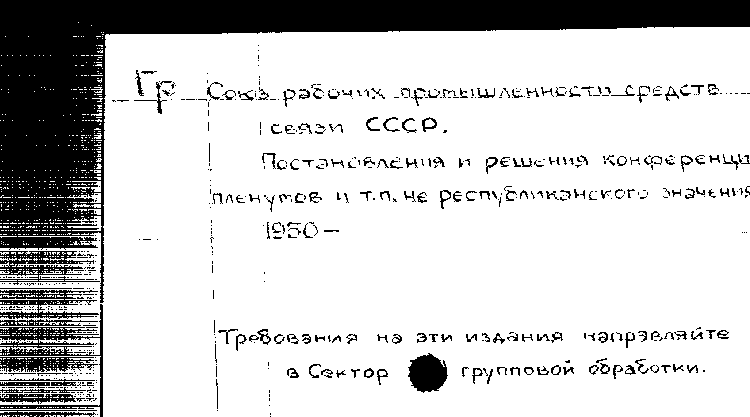 Гр Союз рабочих промышленности средств
связи СССР.
Постановления и решения конференци
пленумов и т.п. не республиканского значения
1950 –
Требования на эти издания направляйте
в Сектор групповой обработки.